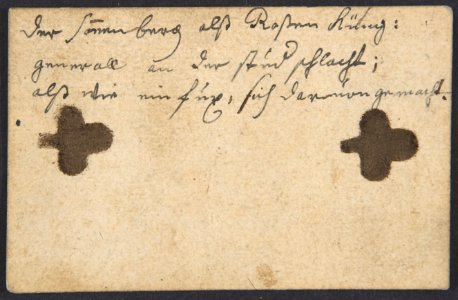 Der Sonnenberg alß Rosen Küng:
generall an der stud schlacht;
alß wie ein fux, sich darvon gemacht.